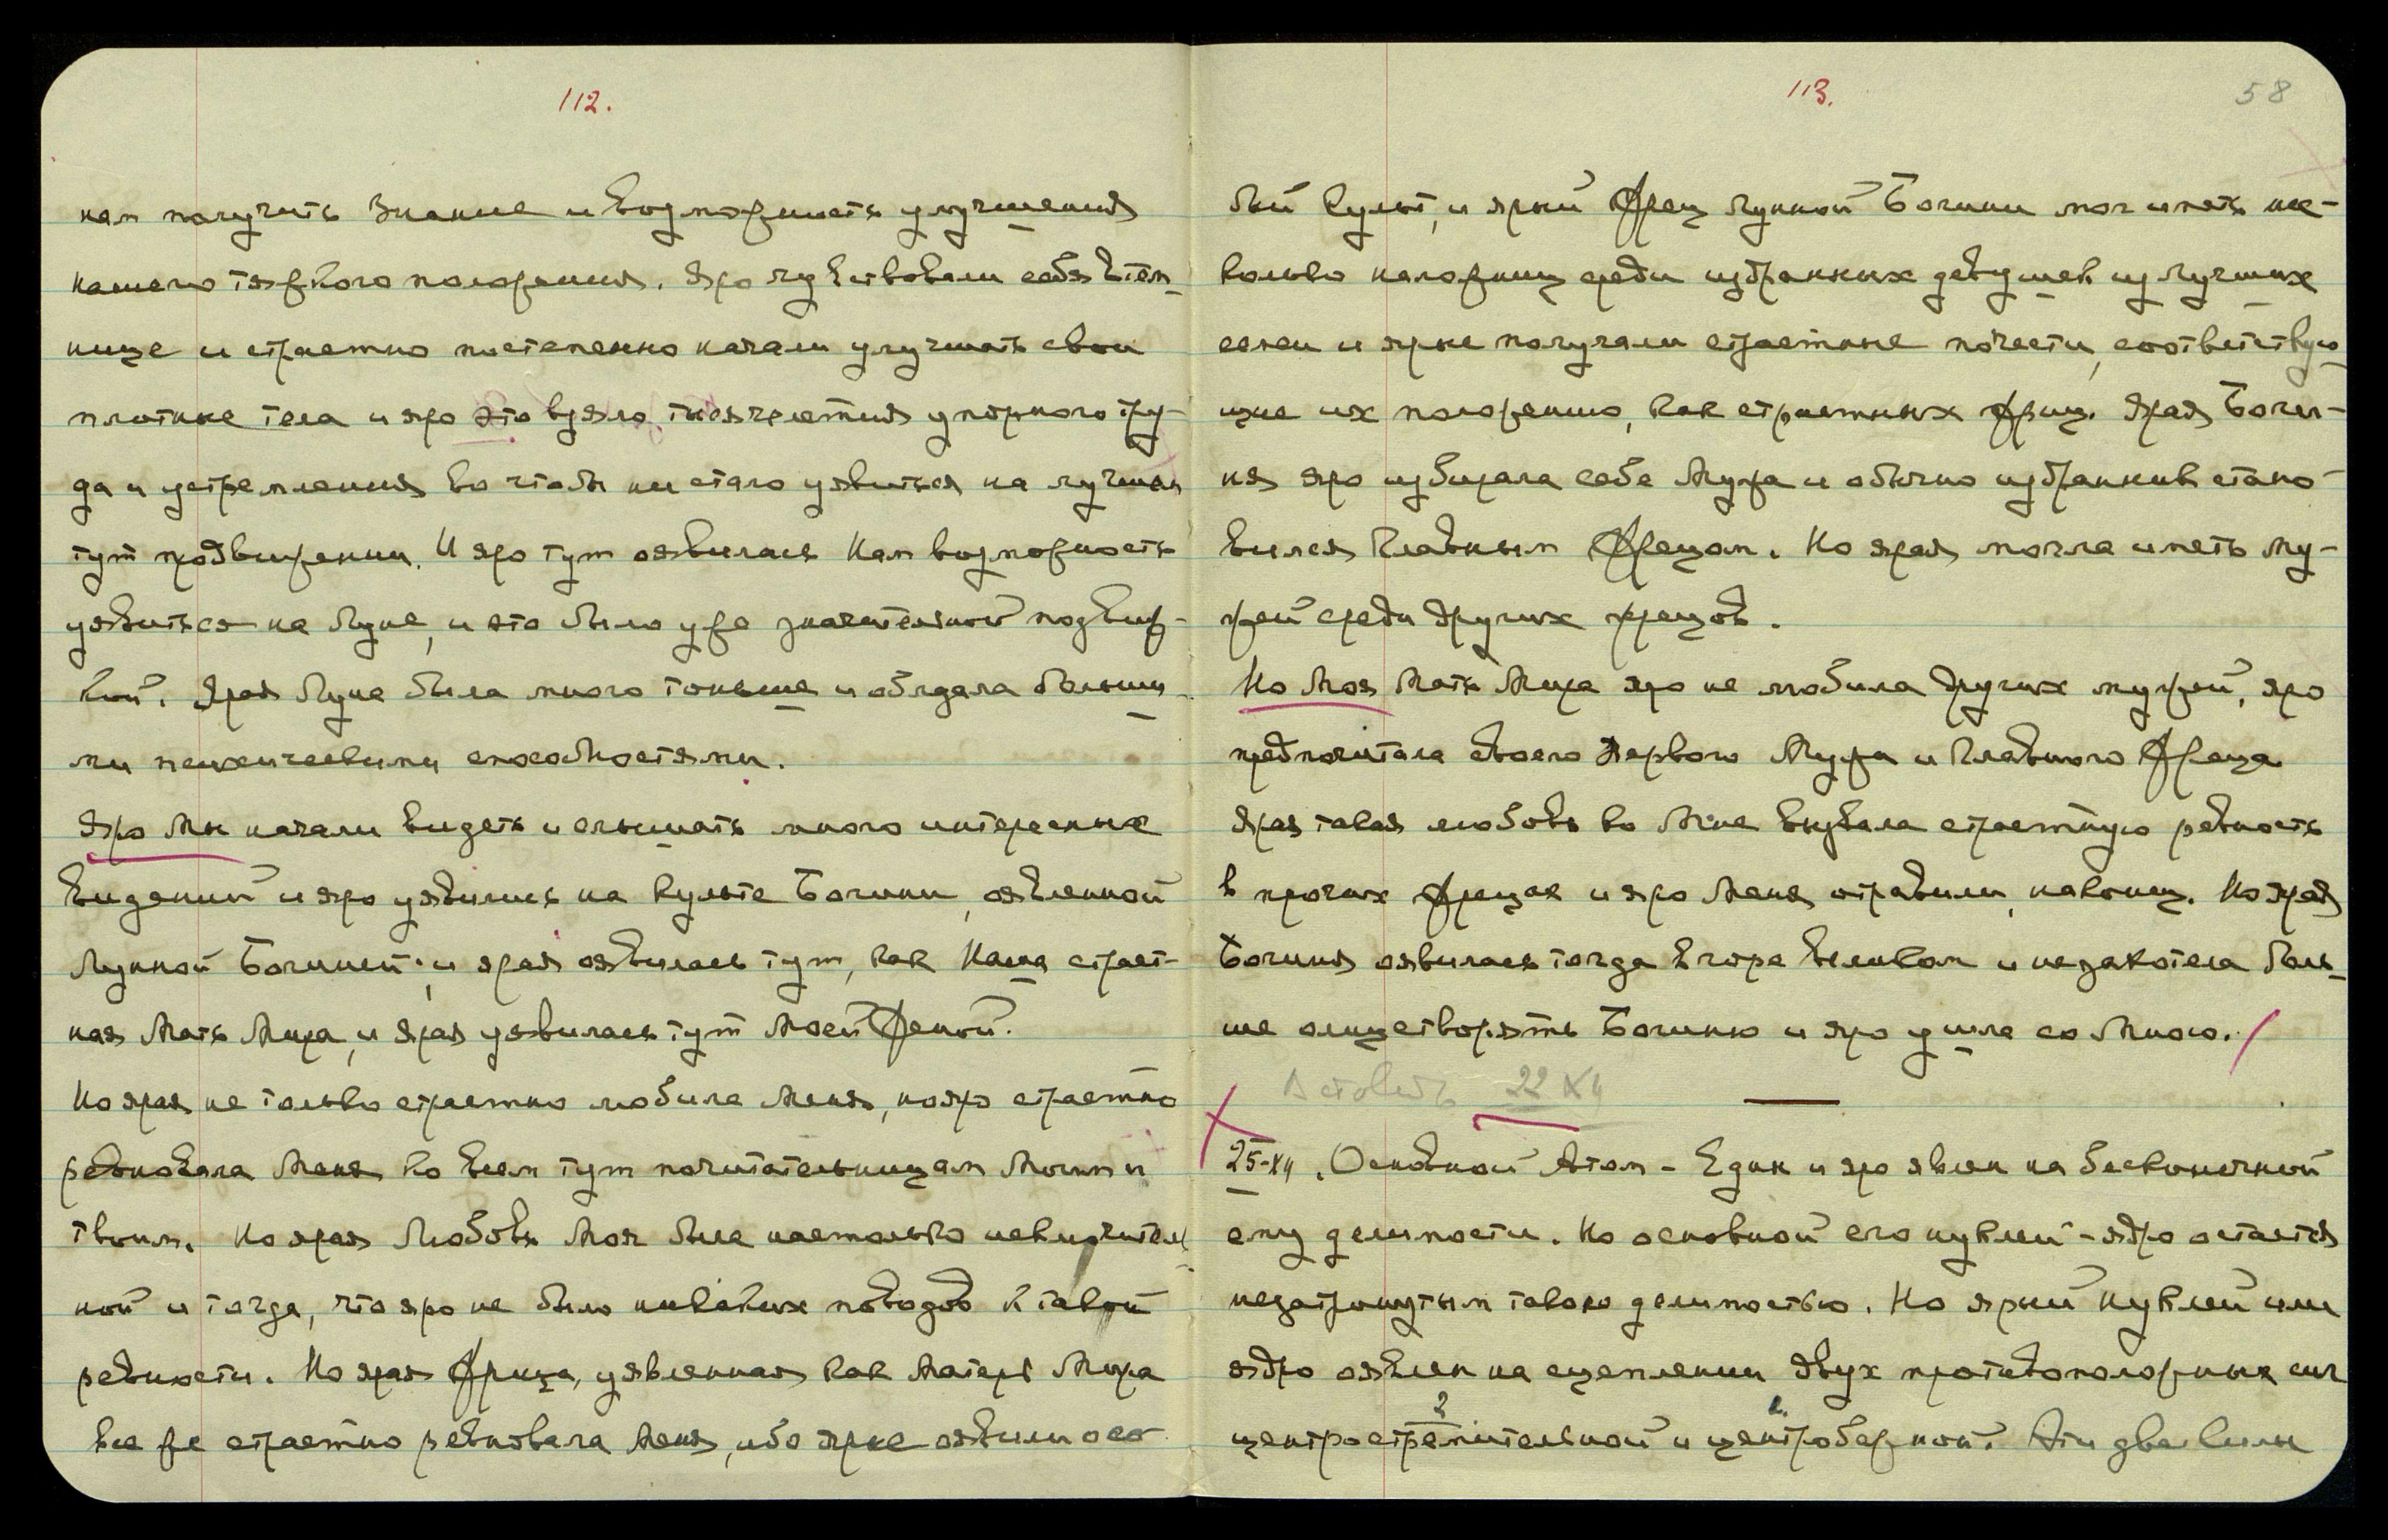 112.
нам получить Знание и возможность улучшения
нашего тяжкого положения. Яро чувствовали себя в тем-
нице и страстно постепенно начали улучшать свои
плотные тела и яро это взяло тысячелетия упорного тру-
да и устремления во что бы ни стало уявиться на лучшем
тут продвижении. И яро тут оявилась Нам возможность
уявиться на Луне, и это было уже значительной подвиж-
кой. Ярая Луна была много тоньше и обладала больши-
ми психическими способностями.
Яро Мы начали видеть и слышать много интересных
видений и яро уявились на культе Богини, оявленной
Лунной Богиней; и ярая оявилась тут, как Наша страст-
ная Мать Мира, и ярая уявилась тут Моей Женой.
Но ярая не только страстно любила Меня, но яро страстно
ревновала Меня ко всем тут почитательницам Моим и
твоим. Но ярая Любовь Моя была настолько исключитель-
ной и тогда, что яро не было никаких поводов к такой
ревности. Но ярая Жрица, уявленная как Матерь Мира
все же страстно ревновала Меня, ибо ярые оявили осо-
113.
58
бый культ, и ярый Жрец Лунной Богини мог иметь не-
колько наложниц среди избранных девушек из лучших
семей и ярые получали страстные почести, соответствую-
щие их положению, как страстных жриц. Ярая Боги-
ня яро избирала себе Мужа и обычно избранник стано-
вился Главным Жрецом. Но ярая могла иметь му-
жей среди других жрецов.
Но Моя Мать Мира яро не любила других мужей, яро
предпочитала своего Первого Мужа и Главного Жреца
Ярая такая любовь ко Мне вызвала страстную ревность
в прочих жрецах и яро Меня отравили, наконец. Но ярая
Богиня оявилась тогда в горе великом и не захотела боль-
ше олицетворять Богиню и яро ушла со Мною.
Вставить 22 XII
25-XII. Основной Атом - Един и яро явлен на бесконечной
ему делимости. Но основной его нуклей - ядро остается
незатронутым такою делимостью. Но ярый Нуклей или
ядро оявлен на сцеплении двух противоположных сил
2 1.
центростремительной и центробежной. Эти две силы